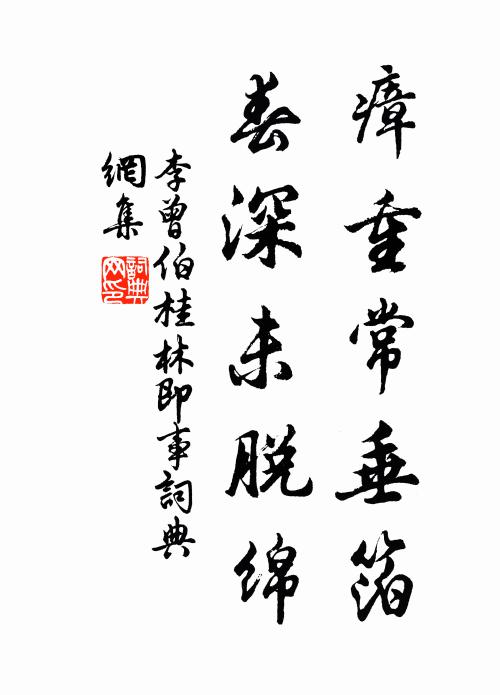 瘴重常垂箔
春深未脱绵
李曾伯桂林即事詞典
網集
詞典網印